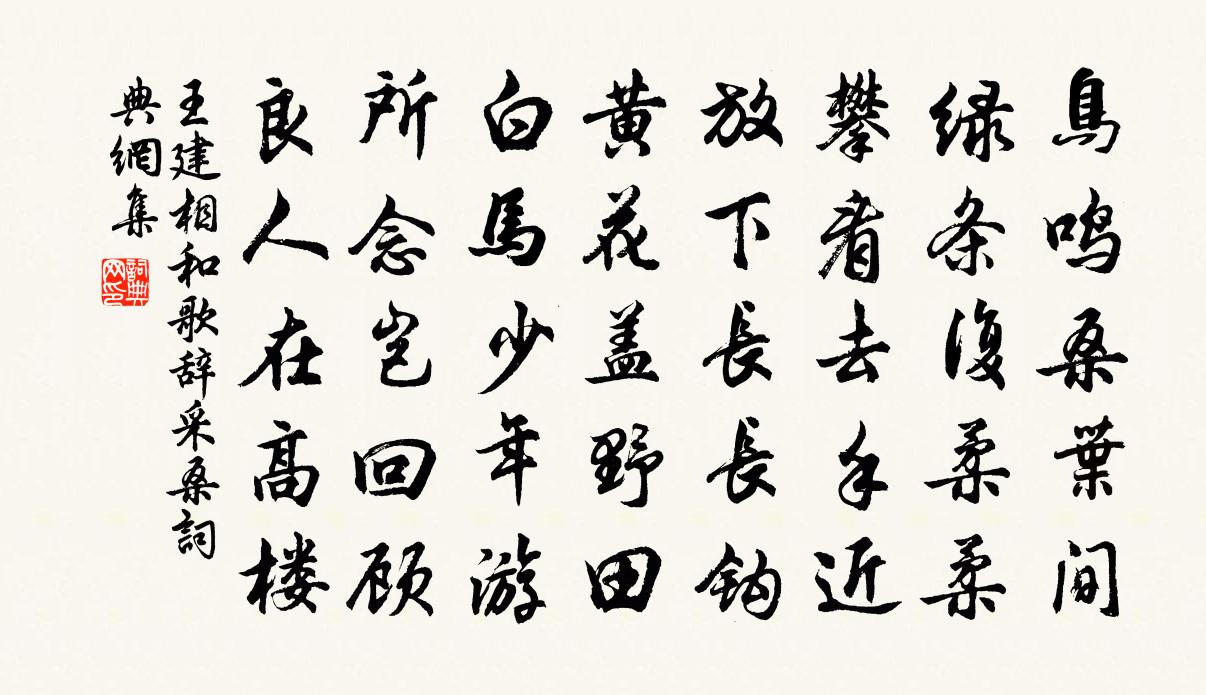 鳥鸣桑葉间
绿条復柔柔
攀看去手近
放下長長钩
黄花盖野田
白馬少年游
所念岂回顾
良人在高楼
王建相和歌辞采桑詞
典網集
詞典网印